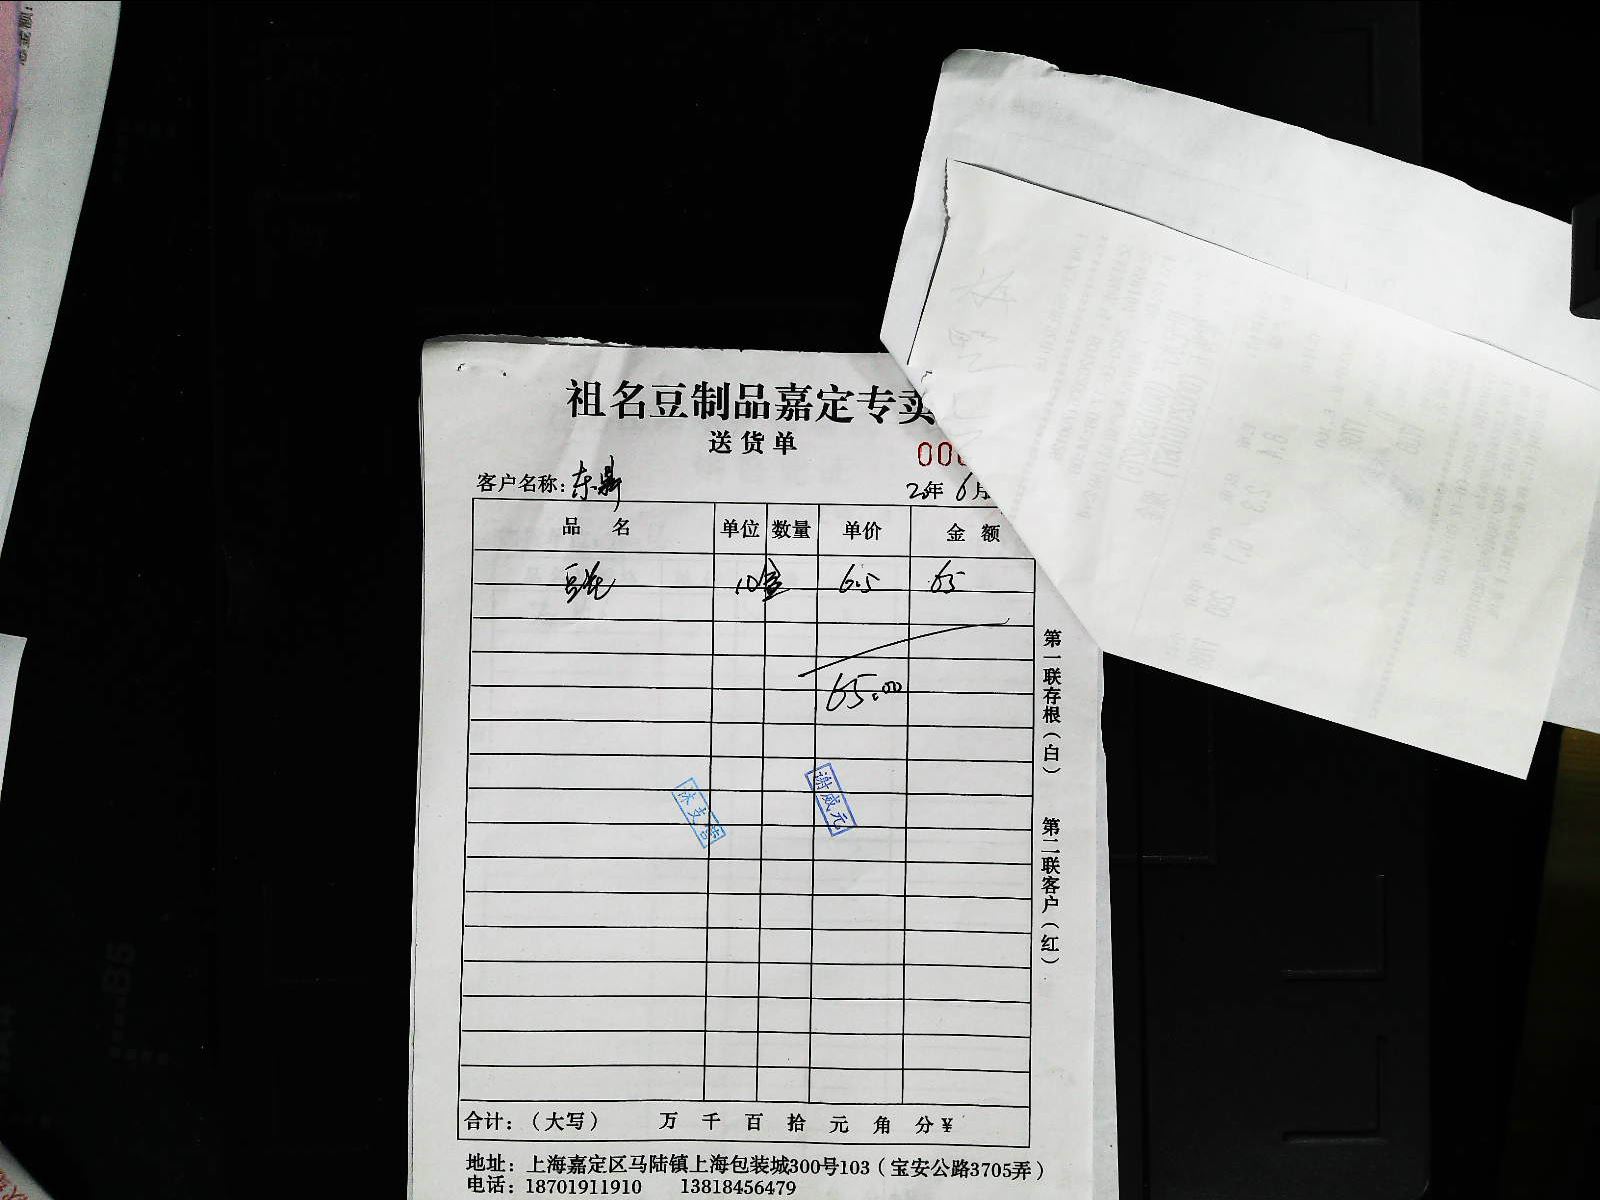 祖名豆制品嘉定专卖
送货单
客户名称：东鼎
年 6月
品名 单位 数量 单价 金额
豆花 10盒 6.5 65
65.00
谢威元
第一联存根（白） 第二联客户（红）
合计：（大写） 万 千 百 拾 元 角 分¥
地址：上海嘉定区马陆镇上海包装城300号103（宝安公路3705弄）
电话：18701911910 13818456479
B5